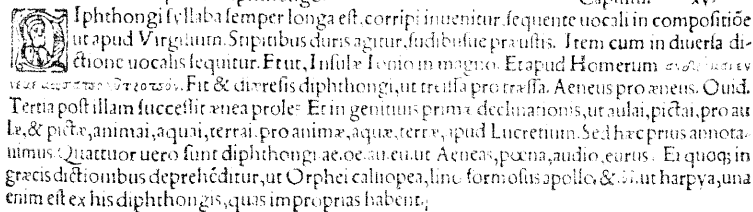 DIphthongi syllaba semper longa est. corripi inuenitur sequente uocali in compositiõe
ut apud Virgilium. Stipitibus duris agitur, sudibusue præustis. Item cum in diuersa di-
ctione uocalis sequitur. Et ut, Insulæ Ionio in magno. Et apud Homerum
Fit & diæresis diphthongi, ut Aeneus pro æneus. Ouid.
Tertia post illam successit ænea proles Et in genitiuis primæ declinationis, ut aulai, pictai, pro au
læ, & pictæ, animai, aquai, terrai, pro animæ, aquæ, terræ, apud Lucretium. Sed hæc prius annota-
uimus. Quattuor uero sunt diphthongi ae. oe. au. eu. ut Aeneas, pœna, audio, eurus. Ei quoq; in
græcis dictionibus deprehẽditur, ut Orphei caliopea, lino formosus apollo, & ut harpya, una
enim est ex his diphthongis, quas improprias habent.